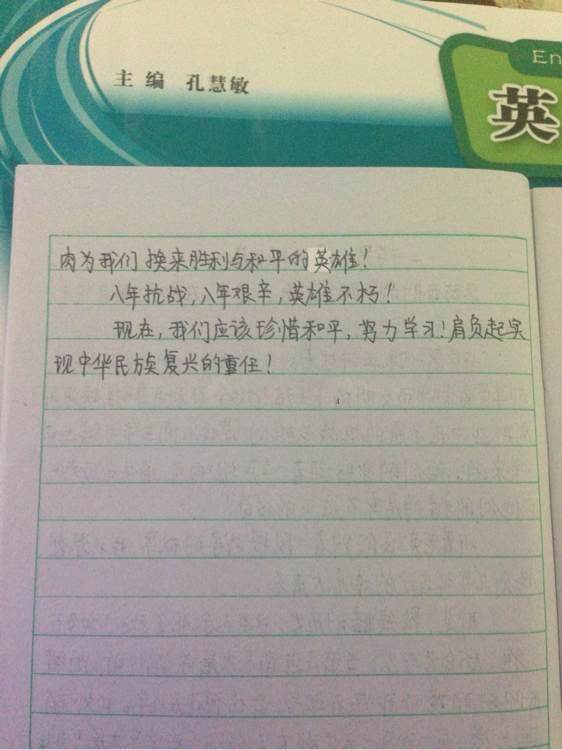 主编 孔慧敏
En
英
肉为我们换来胜利与和平的英雄！
八年抗战，八年艰辛，英雄不朽！
现在，我们应该珍惜和平，努力学习！肩负起实
现中华民族复兴的重任！